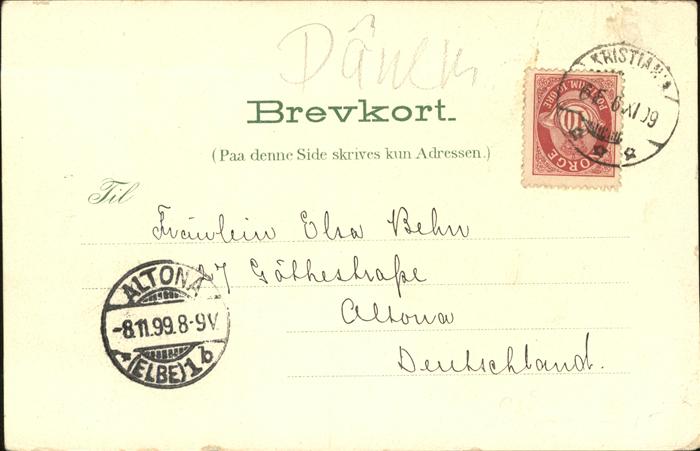 Dänem
Brevkort.
(Paa denne Side skrives kun Adressen.)
Til
Fräulein Elsa Behn
27 Göthestraße
Altona
Deutschland.
KRISTIANIA
6 XI 99
NORGE
10
ALTONA
-8.11.99.8-9V
* (ELBE) 1 b